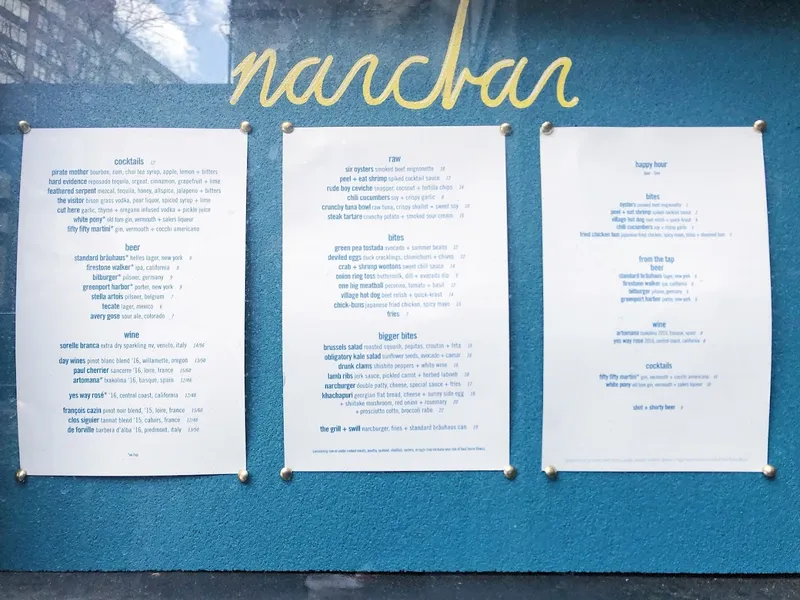 narcbar
cocktails
pirate mother bourbon, rum, chai tea syrup, apple, lemon + bitters
hard evidence reposado tequila, orgeat, cinnamon, grapefruit + lime
feathered serpent mezcal, tequila, honey, allspice, jalapeno + bitters
the visitor bison grass vodka, pear liquor, spiced syrup + lime
cut here garlic, thyme + oregano infused vodka + pickle juice
white pony* old tom gin, vermouth + salers liqueur
fifty fifty martini* gin, vermouth + cocchi americano
beer
standard bräuhaus* helles lager, new york
firestone walker* ipa, california
bitburger* pilsner, germany
greenport harbor* porter, new york
stella artois pilsner, belgium
tecate lager, mexico
avery gose sour ale, colorado
wine
sorelle branca extra dry sparkling nv, veneto, italy
day wines pinot blanc blend '16, willamette, oregon
paul cherrier sancerre '16, loire, france
artomana* txakolina '16, basque, spain
yes way rosé* '16, central coast, california
françois cazin pinot noir blend, '15, loire, france
clos siguier tannat blend '15, cahors, france
de forville barbera d'alba '16, piedmont, italy
raw
six oysters smoked beet negronette
peel + eat shrimp spiked cocktail sauce
rude boy ceviche snapper, coconut + tortilla chips
chili cucumbers soy + crispy garlic
crunchy tuna bowl raw tuna, crispy shallot + sweet soy
steak tartare crunchy potato + smoked sour cream
bites
green pea tostada avocado + summer beans
deviled eggs duck cracklings, chimichurri + chives
crab + shrimp wontons sweet chili sauce
onion ring toss buttermilk, dill + avocado dip
one big meatball pecorino, tomato + basil
village hot dog beet relish + quick-kraut
chick-buns japanese fried chicken, spicy mayo
fries
bigger bites
brussels salad roasted squash, pepitas, crouton + feta
obligatory kale salad sunflower seeds, avocado + caesar
drunk clams shishito peppers + white wine
lamb ribs jerk sauce, pickled carrot + herbed labneh
narcburger double patty, cheese, special sauce + fries
khachapuri georgian flat bread, cheese + sunny side egg
+ shiitake mushroom, red onion + rosemary
+ prosciutto cotto, broccoli rabe
the grill + swill narcburger, fries + standard bräuhaus can
happy hour
bites
oysters smoked beet negronette
peel + eat shrimp spiked cocktail sauce
village hot dog beet relish + quick-kraut
chili cucumbers soy + crispy garlic
fried chicken bun japanese fried chicken, spicy mayo
from the tap
beer
standard bräuhaus lager, new york
firestone walker ipa, california
bitburger pilsner, germany
greenport harbor porter, new york
wine
artomana txakolina
yes way rosé central coast, california
cocktails
fifty fifty martini* gin, vermouth + cocchi americano
white pony old tom gin, vermouth + salers liqueur
shot + shorty beer